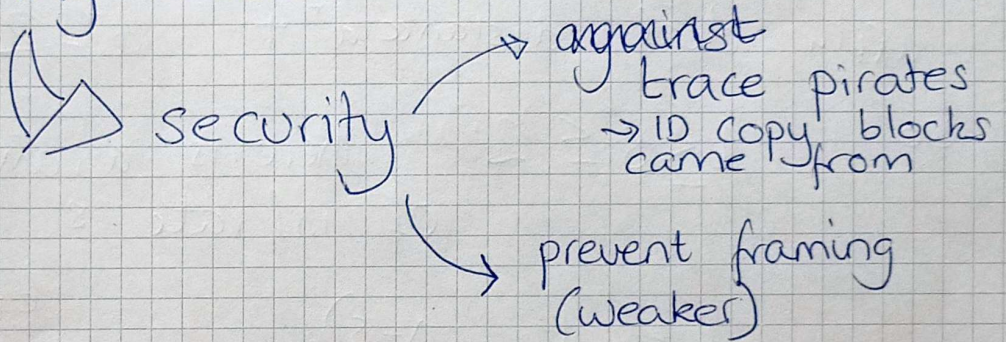 security
angainst
trace pirates
→ ID copy blocks
came from
prevent framing
(weaker)